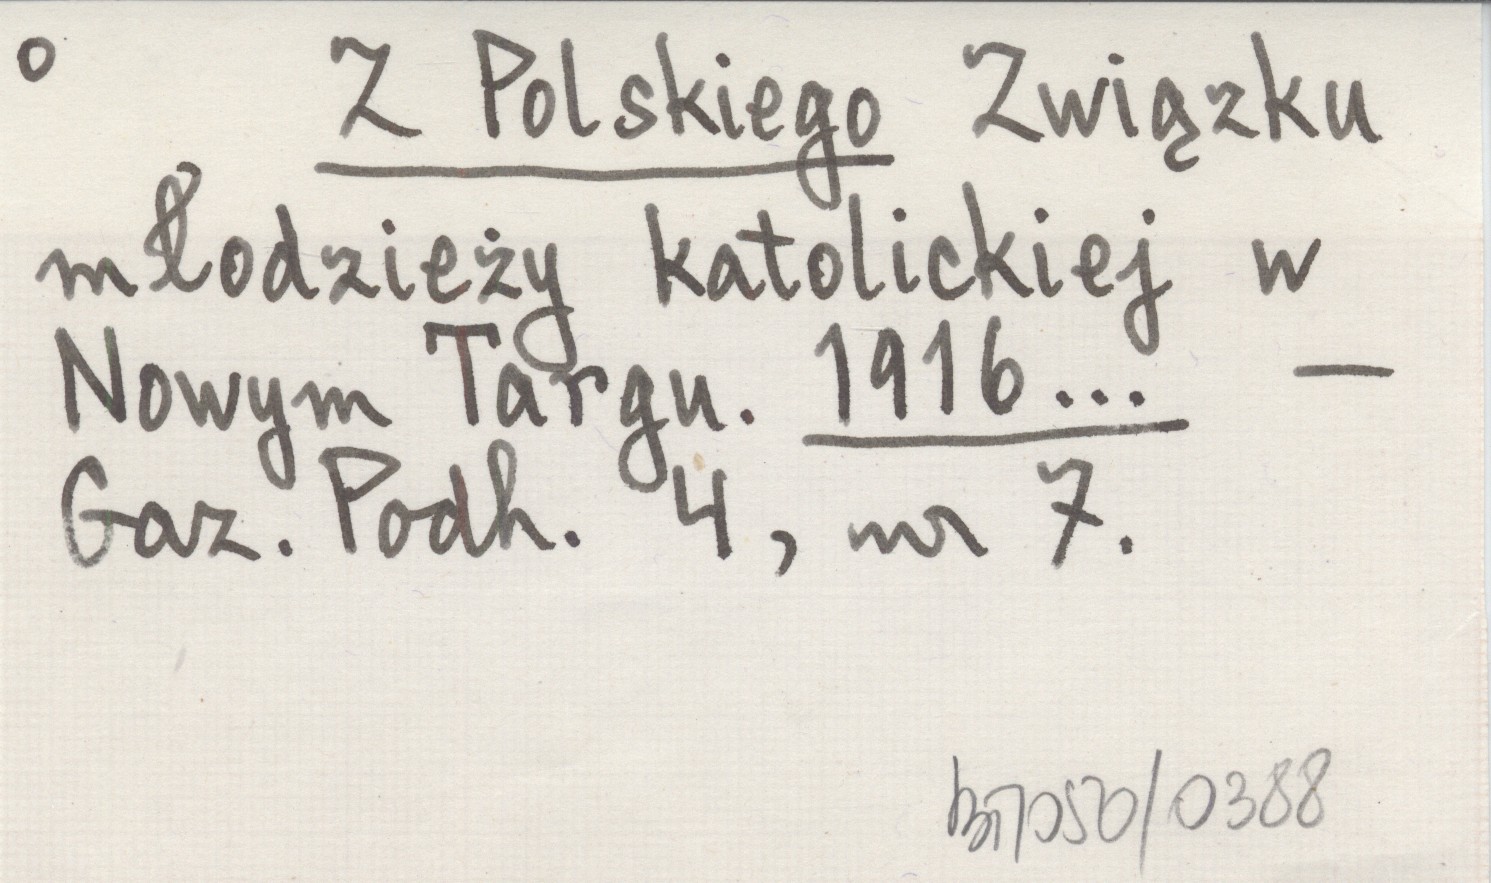 o Z Polskiego Związku
młodzieży katolickiej w
Nowym Targu. 1916... —
Gaz. Podh. 4, nr 7.
/0388